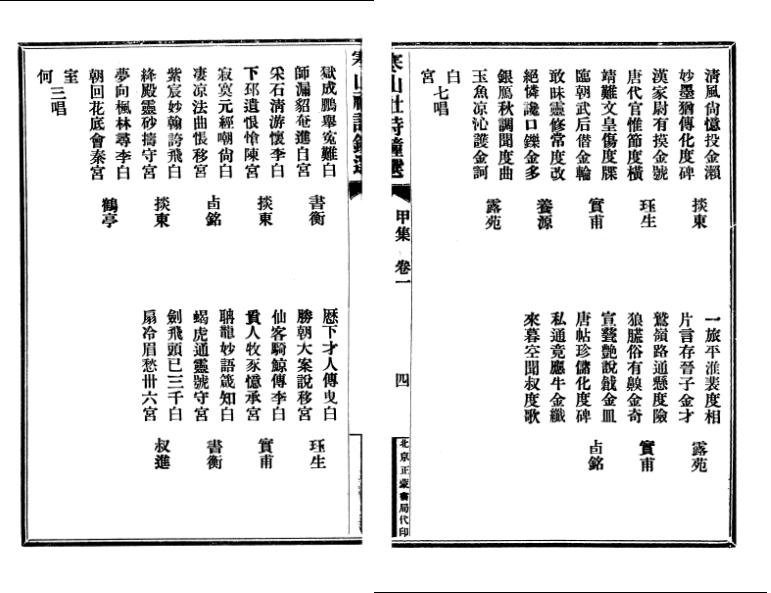 清風尙憶投金瀨
妙墨猶傳化度碑
掞東
一旅平淮裴度相
片言存晉子金才
露苑
漢家尉有摸金號
唐代官惟節度橫
珏生
鷲嶺路通懸度險
狼臚俗有齅金奇
實甫
靖難文皇傷度牒
臨朝武后僭金輪
實甫
宣甃艷說戧金皿
唐帖珍儲化度碑
卣銘
敢昧靈修常度改
絕憐讒口鑠金多
養源
私通竟應牛金纖
來暮空聞叔度歌
銀鴈秋調聞度曲
玉魚凉沁護金訶
露苑
白
宮
七唱
寒山社詩鐘選
甲集
卷一
四
北京正蒙書局代印
獄成鵬舉寃難白
師漏貂奄進自宮
書衡
歷下才人傳曳白
勝朝大案說移宮
珏生
采石清游懷李白
下邳遺恨愴陳宮
掞東
仙客騎鯨傳李白
貫人牧豕憶承宮
實甫
寂寞元經嘲尙白
凄凉法曲悵移宮
卣銘
聃龍妙語箴知白
蝎虎通靈號守宮
書衡
紫宸妙翰誇飛白
絳殿靈砂擣守宮
掞東
劍飛頭已三千白
扇冷眉愁卅六宮
叔進
夢向楓林尋李白
朝回花底會秦宮
鶴亭
室
何
三唱